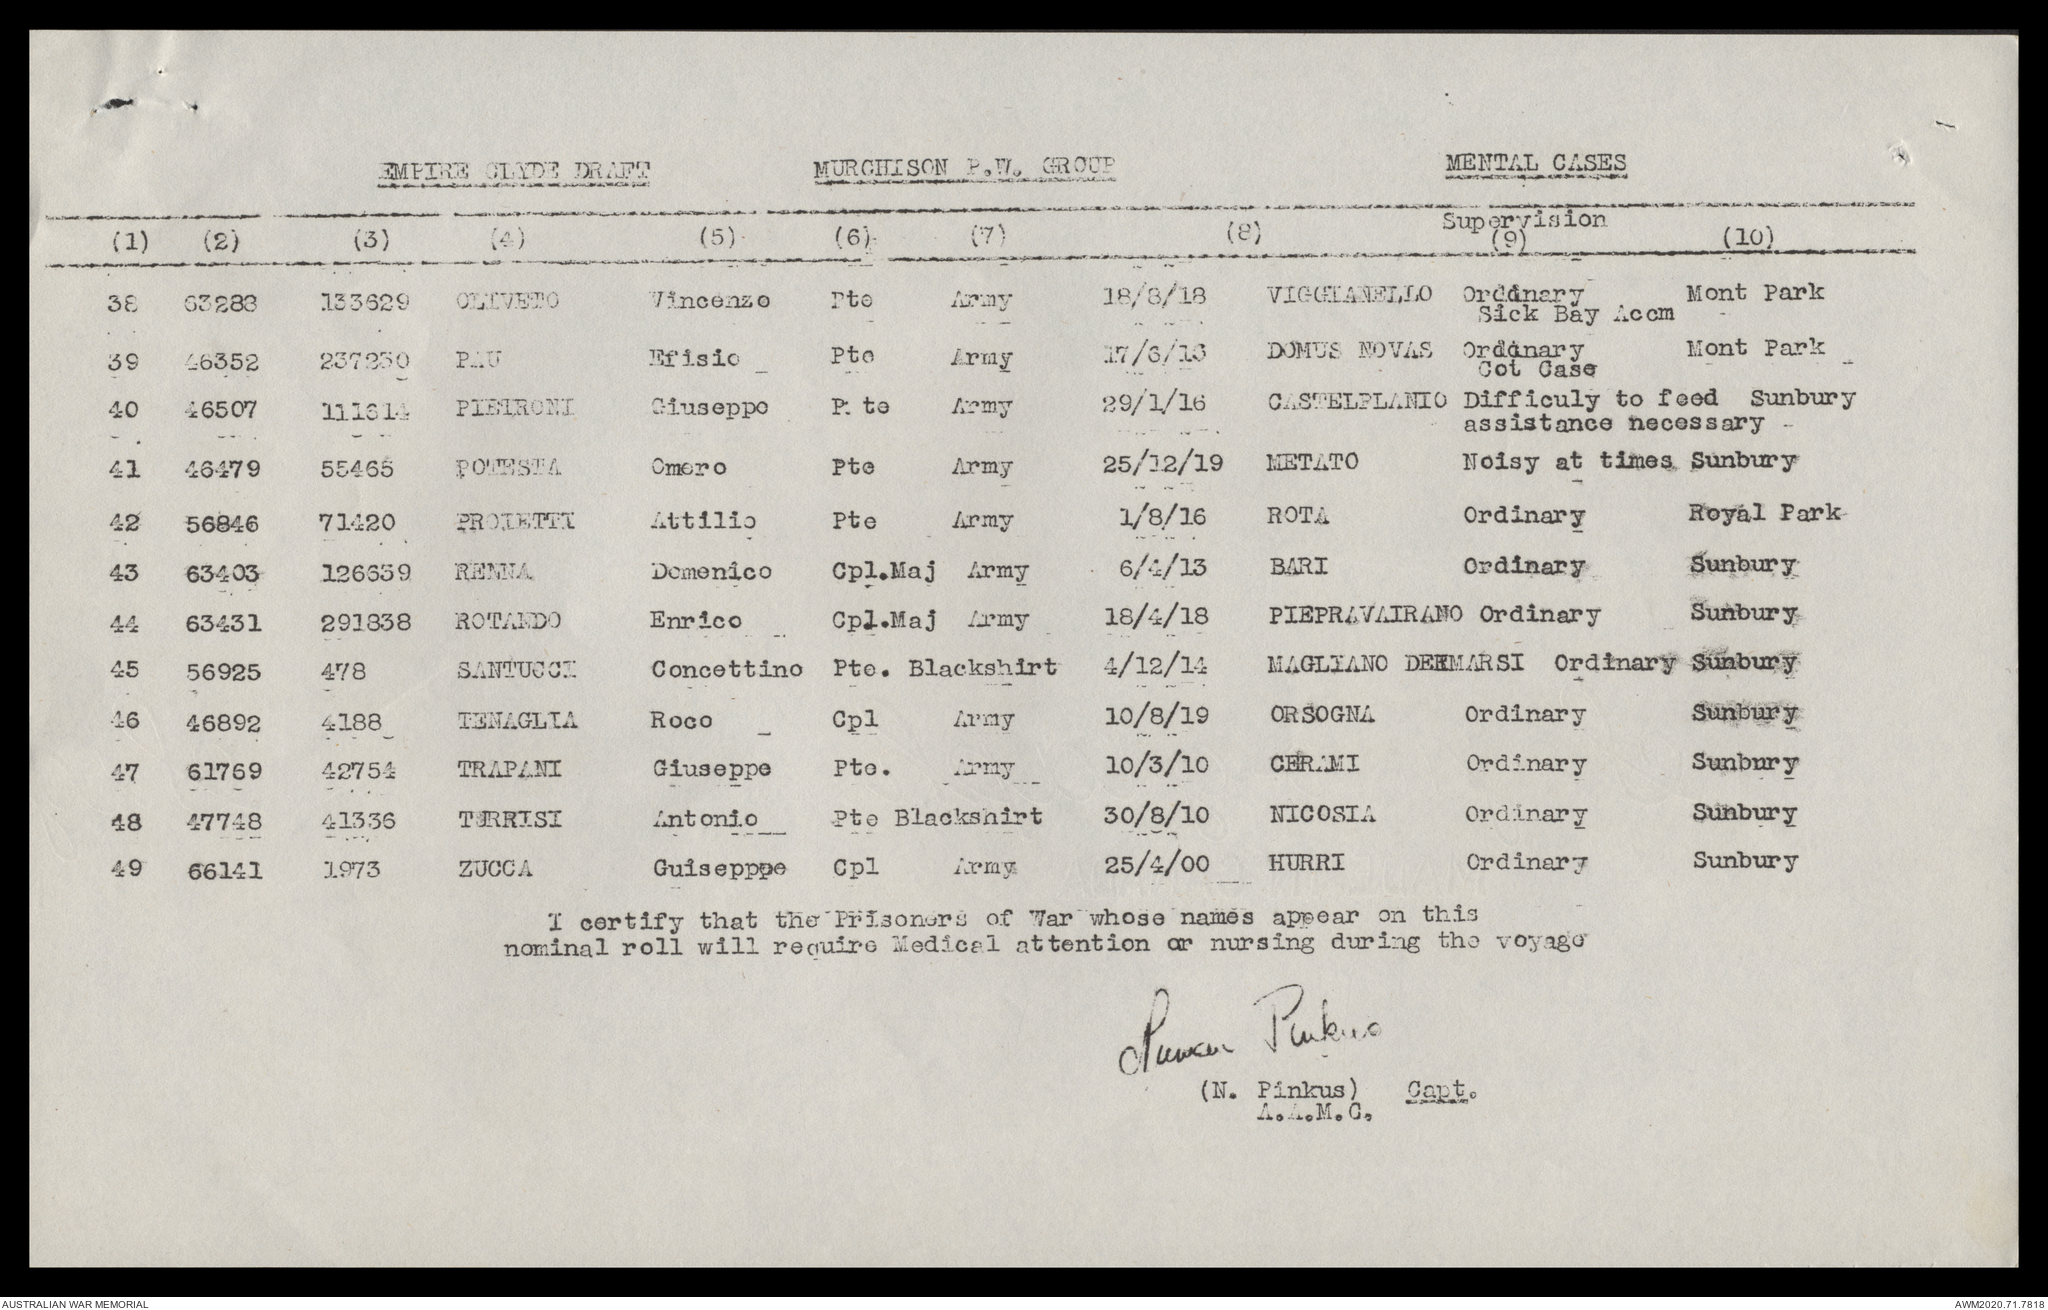 EMPIRE CLYDE DRAFT MURCHISON P.W. GROUP MENTAL CASES
Supervision
(1) (2) (3) (4) (5) (6) (7) (8) (9) (10)
38 63288 133629 OLIVETO Vincenzo Pte Army 18/8/18 VIGGIANELLO Ordinary Mont Park
Sick Bay Accm
39 46352 237230 PAU Efisio Pte Army 17/6/16 DOMUS NOVAS Ordinary Mont Park
Cot Case
40 46507 111614 PIETRONI Giuseppe P te Army 29/1/16 CASTELPLANIO Difficuly to feed Sunbury
assistance necessary
41 46479 55465 POTESTA Omero Pte Army 25/12/19 METATO Noisy at times Sunbury
42 56846 71420 PROIETTI Attilio Pte Army 1/8/16 ROTA Ordinary Royal Park
43 63403 126639 RENNA Domenico Cpl.Maj Army 6/4/13 BARI Ordinary Sunbury
44 63431 291838 ROTANDO Enrico Cpl.Maj Army 18/4/18 PIEPRAVAIRANO Ordinary Sunbury
45 56925 478 SANTUCCI Concettino Pte. Blackshirt 4/12/14 MAGLIANO DEIMARSI Ordinary Sunbury
46 46892 4188 TENAGLIA Roco Cpl Army 10/8/19 ORSOGNA Ordinary Sunbury
47 61769 42754 TRAPANI Giuseppe Pte. Army 10/3/10 CERAMI Ordinary Sunbury
48 47748 41336 TURRISI Antonio Pte Blackshirt 30/8/10 NICOSIA Ordinary Sunbury
49 66141 1973 ZUCCA Guisepppe Cpl Army 25/4/00 HURRI Ordinary Sunbury
I certify that the Prisoners of War whose names appear on this
nominal roll will require Medical attention or nursing during the voyage
Pinkus
(N. Pinkus) Capt.
A.A.M.C.
AUSTRALIAN WAR MEMORIAL AWM2020.71.7818